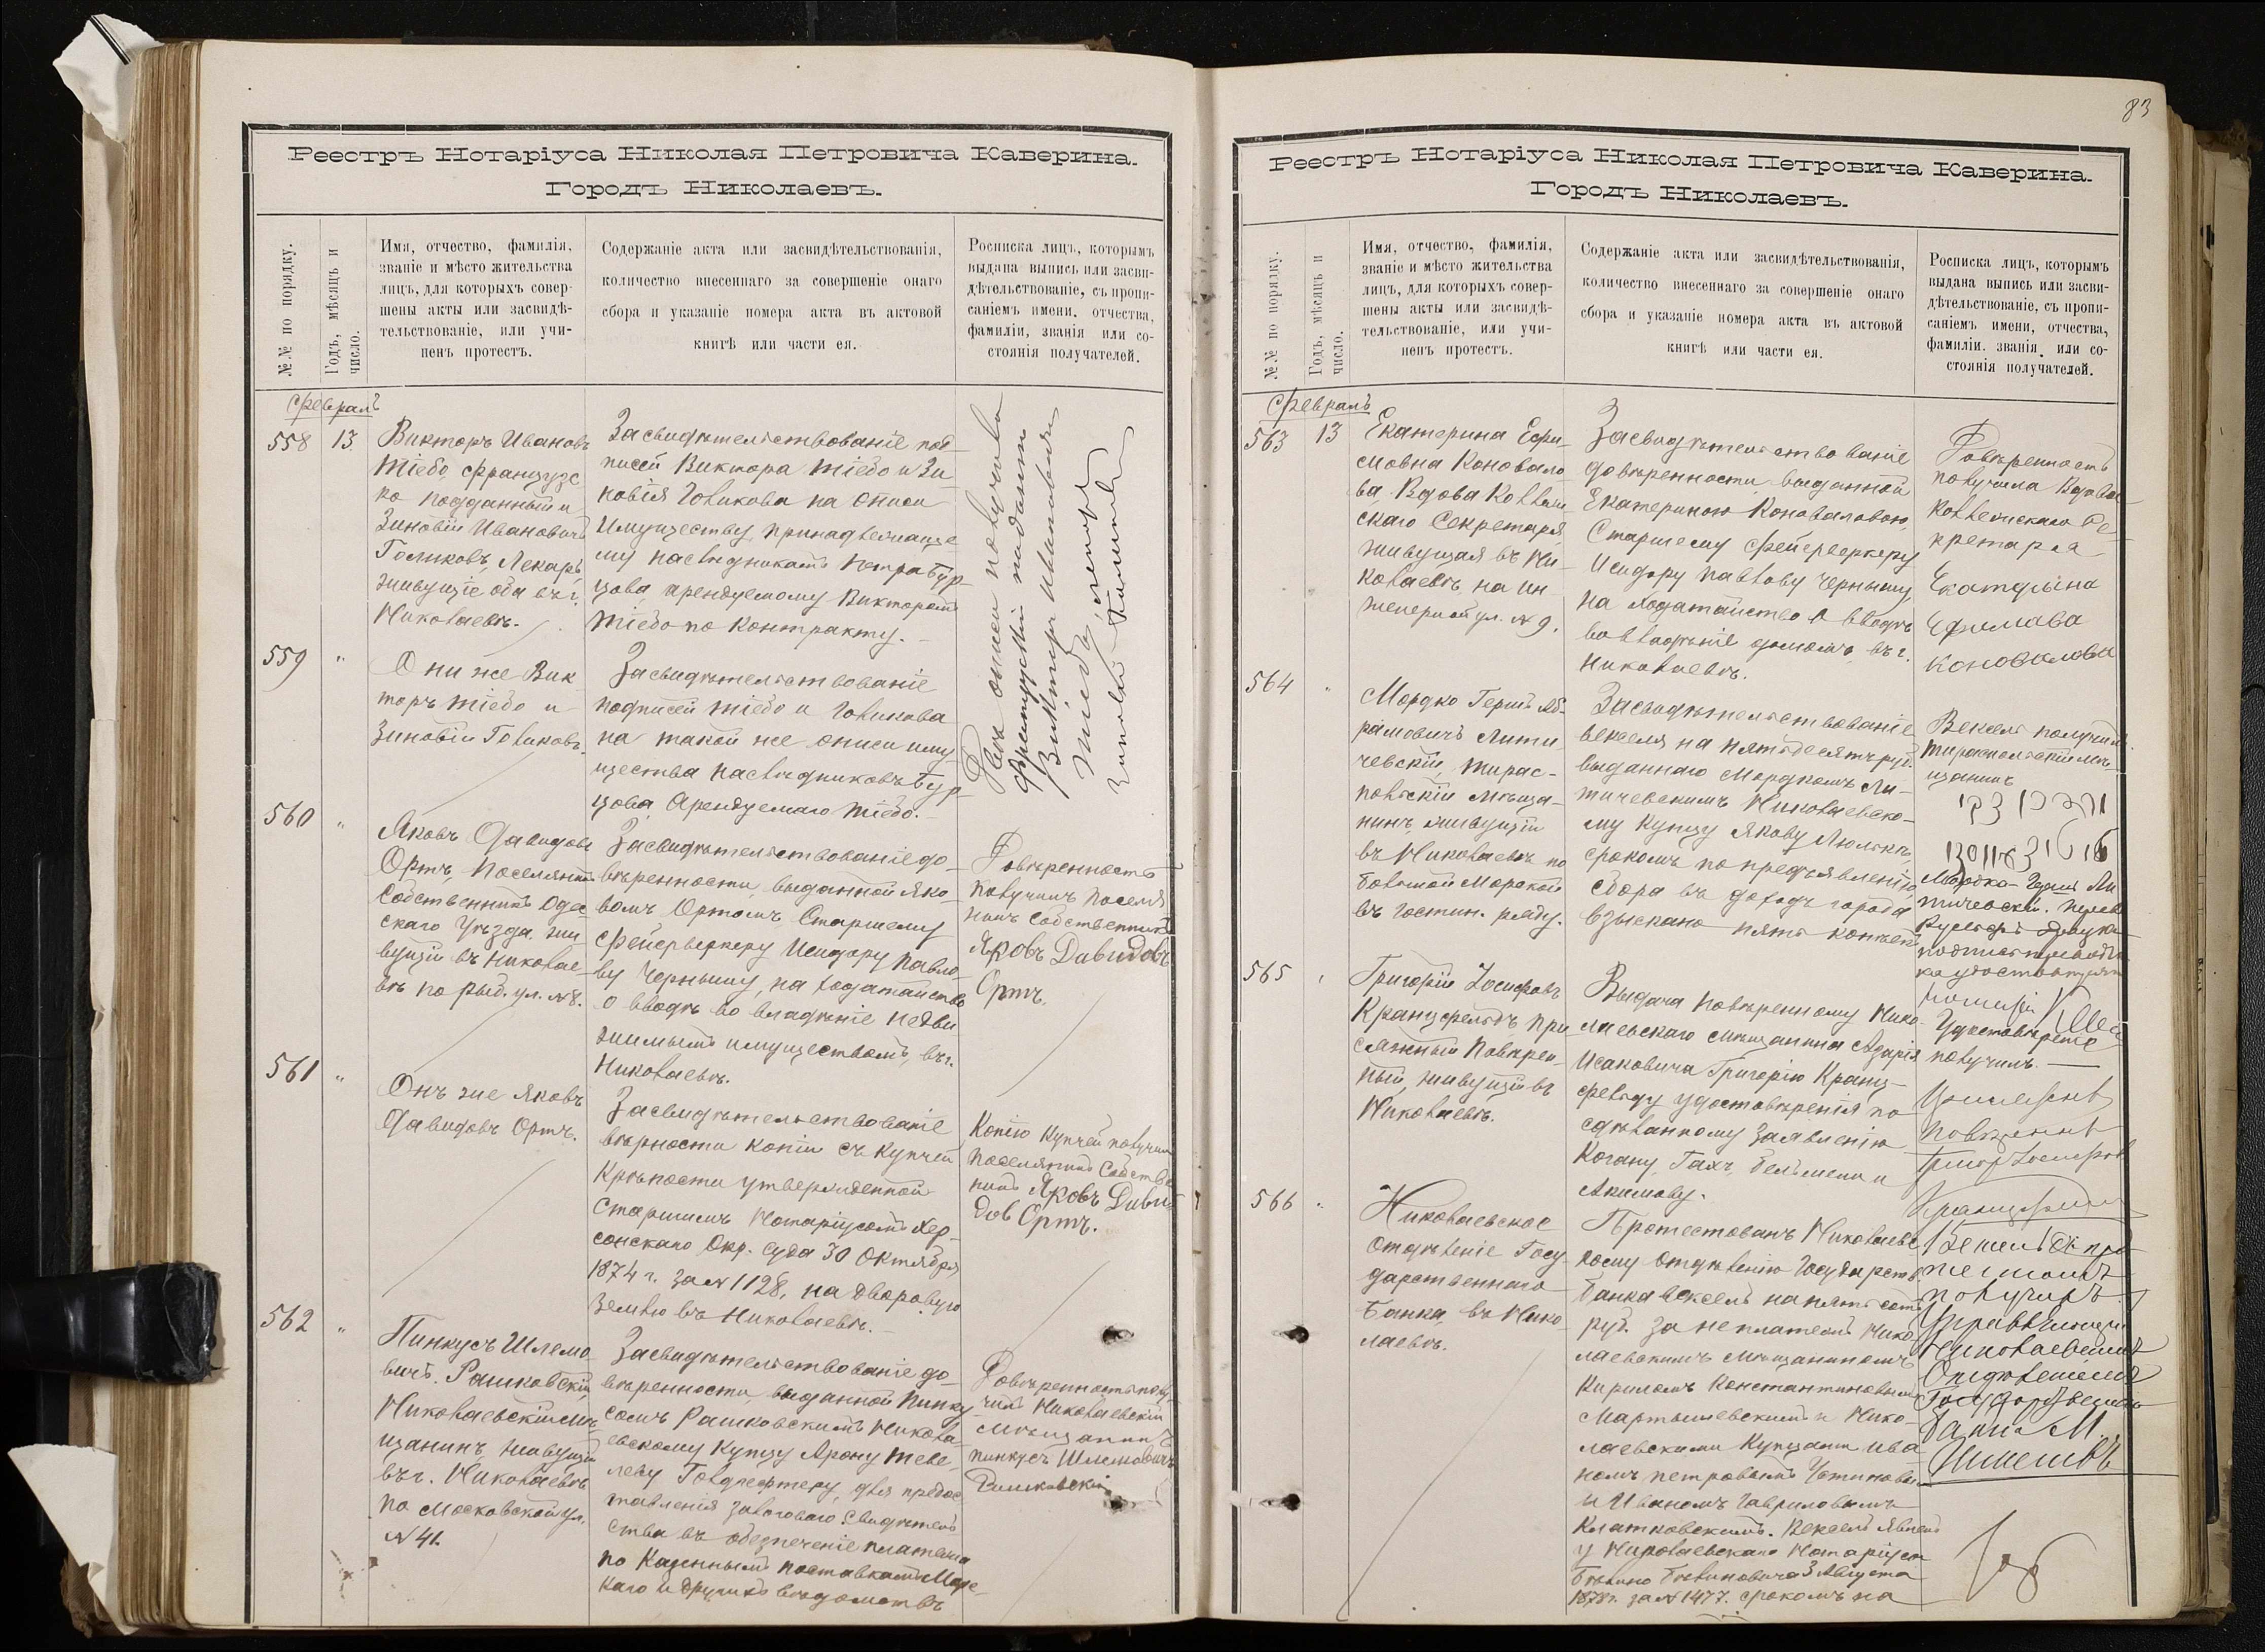 Реестръ Нотаріуса Николая Петровича Каверина.
Городъ Николаевъ.
№№ по порядку.
Годъ, мѣсяцъ и
число.
Имя, отчество, фамилія,
званіе и мѣсто жительства
лицъ, для которыхъ совер-
шены акты или засвидѣ-
тельствованіе, или учи-
ненъ протестъ.
Содержаніе акта или засвидѣтельствованія,
количество внесеннаго за совершеніе онаго
сбора и указаніе номера акта въ актовой
книгѣ или части ея.
Росписка лицъ, которымъ
выдана выпись или засви-
дѣтельствованіе, съ пропи-
саніемъ имени, отчества,
фамиліи, званія или со-
стоянія получателей.
Февраль
558
13
Викторъ Ивановъ
Тіебо, француз
подданный и
Зиновій Ивановичъ
Голиковъ, Лекарь,
живущіе оба въ г.
Николаевѣ.
Засвидѣтельствованіе под-
писей Виктора Тіебо и Зи-
новія Голикова на описи
имуществу, принадлежаще-
му наслѣдникамъ Петра Бур-
цова, арендуемому Викторомъ
Тіебо по контракту.
Двѣ описи получилъ
французскій подданный
Викторъ Ивановичъ
Тіебо, лекарь
Зиновій Голиковъ
559
"
Они же Вик
торъ Тіебо и
Зиновій Голиковъ.
Засвидѣтельствованіе
подписей Тіебо и Голикова
на такой же описи иму
щества наслѣдниковъ Бур-
цова, Арендуемаго Тіебо.
560
"
Яковъ Давидовъ
Ортъ, Поселянинъ
Собственникъ Одес
скаго Уѣзда, жи
вущій въ Николае-
вѣ по Рыб. ул. №8.
Засвидѣтельствованіе до-
вѣренности, выданной Яко-
вомъ Ортомъ Старшему
Фейерверкеру Исидору Павло-
ву Чернышу, на ходатайство
о вводѣ во владѣніе недви
жимымъ имуществомъ, въ г.
Николаевѣ.
Довѣренность
получилъ поселя
нинъ собственникъ
Яковъ Давидовъ
Ортъ.
561
"
Онъ же Яковъ
Давидовъ Ортъ.
Засвидѣтельствованіе
вѣрности копіи съ купчей
крѣпости утвержденной
Старшимъ Нотаріусомъ Хер-
сонскаго Окр. Суда 30 Октября
1874 г. за № 1128, на дворовую
землю въ Николаевѣ.
Копію купчей получилъ
поселянинъ Собствен
никъ Яковъ Дави-
довъ Ортъ.
562
"
Пинкусъ Шлемо
вичъ Рашковскій,
Николаевскій мѣ
щанинъ, живущій
въ г. Николаевѣ
по Московской ул.
№ 41.
Засвидѣтельствованіе до-
вѣренности, выданной Пинку
сомъ Рашковскимъ Никола-
евскому купцу Арону Теве-
леву Гольденфтеру, для предос
тавленія залоговаго свидѣтель
ства въ обезпеченіе платежа
по казеннымъ поставкамъ Морс-
каго и другихъ вѣдомствъ
Довѣренность полу
чилъ Николаевскій
мѣщанинъ
Пинкусъ Шлемовичъ
Рашковскій
83
Реестръ Нотаріуса Николая Петровича Каверина.
Городъ Николаевъ.
№№ по порядку.
Годъ, мѣсяцъ и
число.
Имя, отчество, фамилія,
званіе и мѣсто жительства
лицъ, для которыхъ совер-
шены акты или засвидѣ-
тельствованіе, или учи-
ненъ протестъ.
Содержаніе акта или засвидѣтельствованія,
количество внесеннаго за совершеніе онаго
сбора и указаніе номера акта въ актовой
книгѣ или части ея.
Росписка лицъ, которымъ
выдана выпись или засви-
дѣтельствованіе, съ пропи-
саніемъ имени, отчества,
фамиліи. званія или со-
стоянія получателей.
Февраль
563
13
Екатерина Ефи-
мовна Коновало
ва Вдова Коллеж
скаго Секретаря,
живущая въ Ни-
колаевѣ, на Ин-
женерной ул. № 9.
Засвидѣтельствованіе
довѣренности, выданной
Екатериною Коноваловою,
Старшему фейерверкеру
Исидору Павлову Чернышу,
на ходатайство о вводѣ
во владѣніе домомъ, въ г.
Николаевѣ.
Довѣренность
получила Вдова
Коллежскаго Се-
кретаря
Екатерина
Ефимова
Коновалова
564
"
Мордко Гершъ Аб-
рамовичъ Лити
чевскій, Тирас-
польскій мѣща-
нинъ, живущій
въ Николаевѣ по
Большой Морской
въ Гостин. ряду.
Засвидѣтельствованіе
векселя на пятьдесятъ руб.
выданнаго Мордкомъ Ли-
тичевскимъ Николаевско-
му купцу Якову Люльк,
срокомъ по предъявленію
Сбора въ доходъ города
взыскано пять копѣекъ
Вексель получилъ
Тираспольскій мѣ-
щанинъ
Мордко Гершъ Ли
тичевскій.
565
"
Григорій Іосифовъ
Кранцфельдъ При
сяжный Повѣрен-
ный, живущій въ
Николаевѣ.
Выдача повѣренному Нико-
лаевскаго мѣщанина Азарія
Исаковича Григорію Кранц-
фельду удостовѣренія по
сдѣланному заявленію
Когану, Гахъ, Бельмени и
Акимову.
Удостовѣреніе
получилъ.
Присяжный
Повѣренный
Григор. Іосифов
Кранцфельд
566
"
Николаевское
Отдѣленіе Госу-
дарственнаго
Банка, въ Нико-
лаевѣ.
Протестованъ Николаевс
кому Отдѣленію Государств.
Банка вексель на пятьсотъ
руб. за неплатежъ Нико-
лаевскимъ мѣщаниномъ
Кириломъ Константиновымъ
Мартышевскимъ и Нико-
лаевскими купцами Ива
номъ Петровымъ Устиновым
и Иваномъ Гавриловымъ
Клатковскимъ. Вексель явленъ
у Николаевскаго Нотаріуса
3 Августа
1878 г. за № 1477. срокомъ на
Вексель съ про
тестомъ
получилъ
Управляющій
Николаевскимъ
Отдѣленіемъ
Государственнаго
Банка